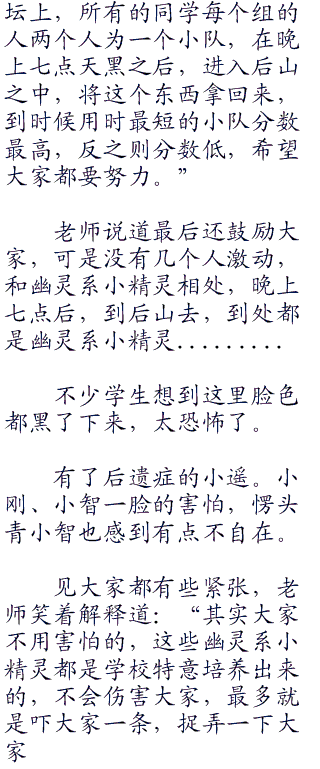 坛上，所有的同学每个组的
人两个人为一个小队，在晚
上七点天黑之后，进入后山
之中，将这个东西拿回来，
到时候用时最短的小队分数
最高，反之则分数低，希望
大家都要努力。”
老师说道最后还鼓励大
家，可是没有几个人激动，
和幽灵系小精灵相处，晚上
七点后，到后山去，到处都
是幽灵系小精灵.........
不少学生想到这里脸色
都黑了下来，太恐怖了。
有了后遗症的小遥。小
刚、小智一脸的害怕，愣头
青小智也感到有点不自在。
见大家都有些紧张，老
师笑着解释道：“其实大家
不用害怕的，这些幽灵系小
精灵都是学校特意培养出来
的，不会伤害大家，最多就
是吓大家一条，捉弄一下大
家